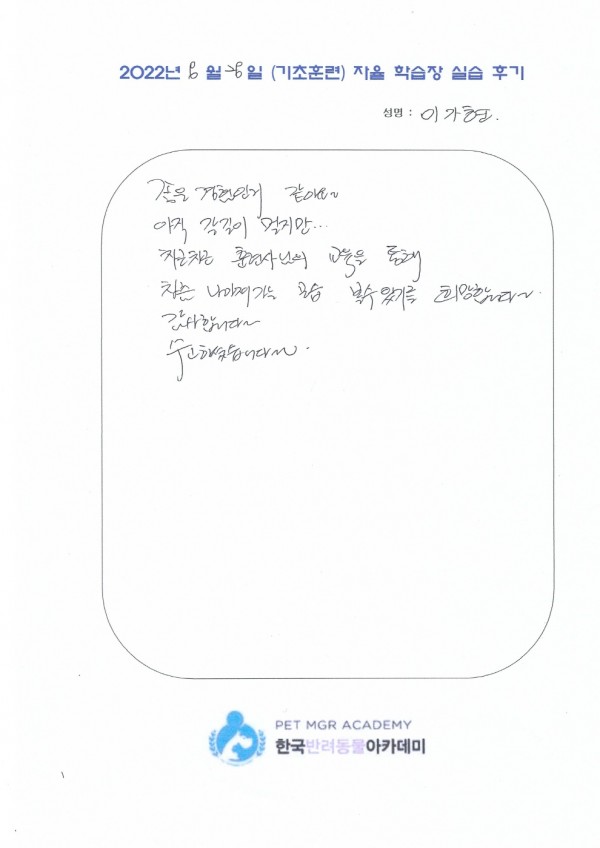 2022년 8월 28일 (기초훈련) 자율 학습장 실습 후기
성명 : 이가현.
좋은 경험인거 같아요~
아직 갈길이 멀지만...
차근차근 훈련사님의 교육을 통해
차츰 나아져가는 모습 볼수있기를 희망합니다~
감사합니다~
수고하셨습니다~
PET MGR ACADEMY
한국반려동물아카데미